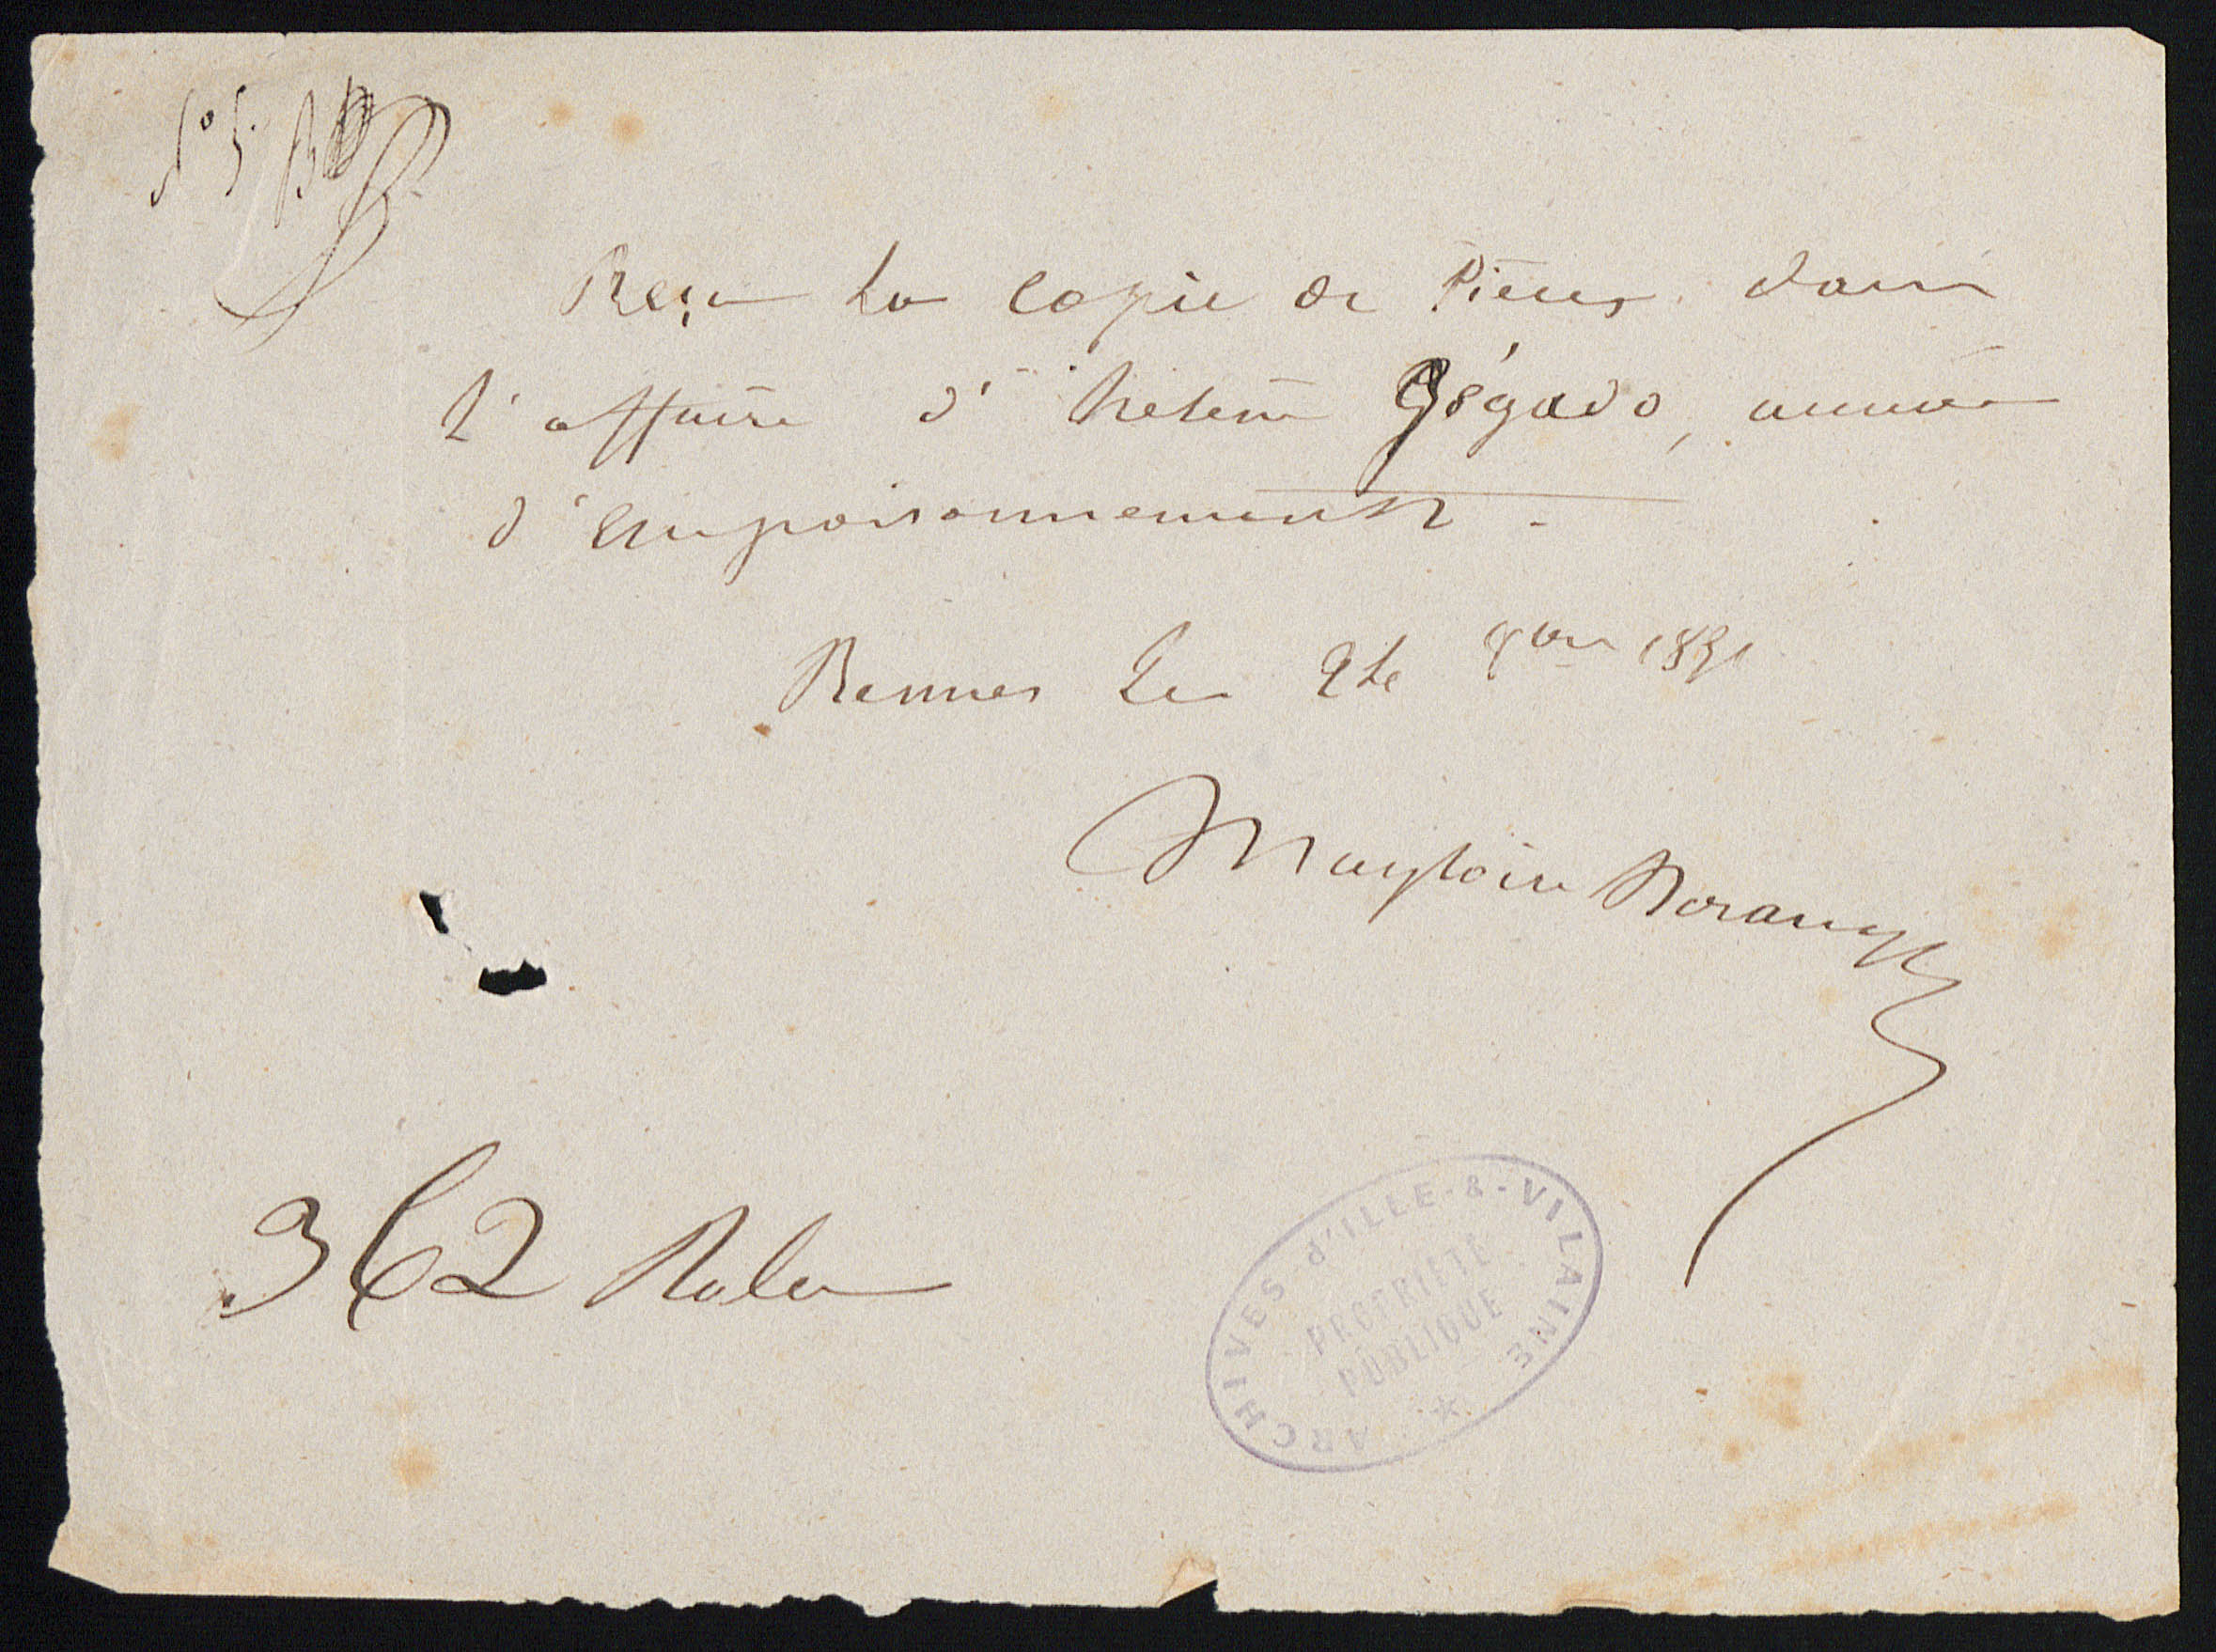 N° 5
Reçu la copie de Pieces dans
l'affaire d'helene Jégado, accusée
d'empoisonnements.
Rennes le 24 9bre 1851
Magloire Dorange
362 Roles
ARCHIVES D'ILLE-&-VILAINE
PROPRIÉTÉ
PUBLIQUE